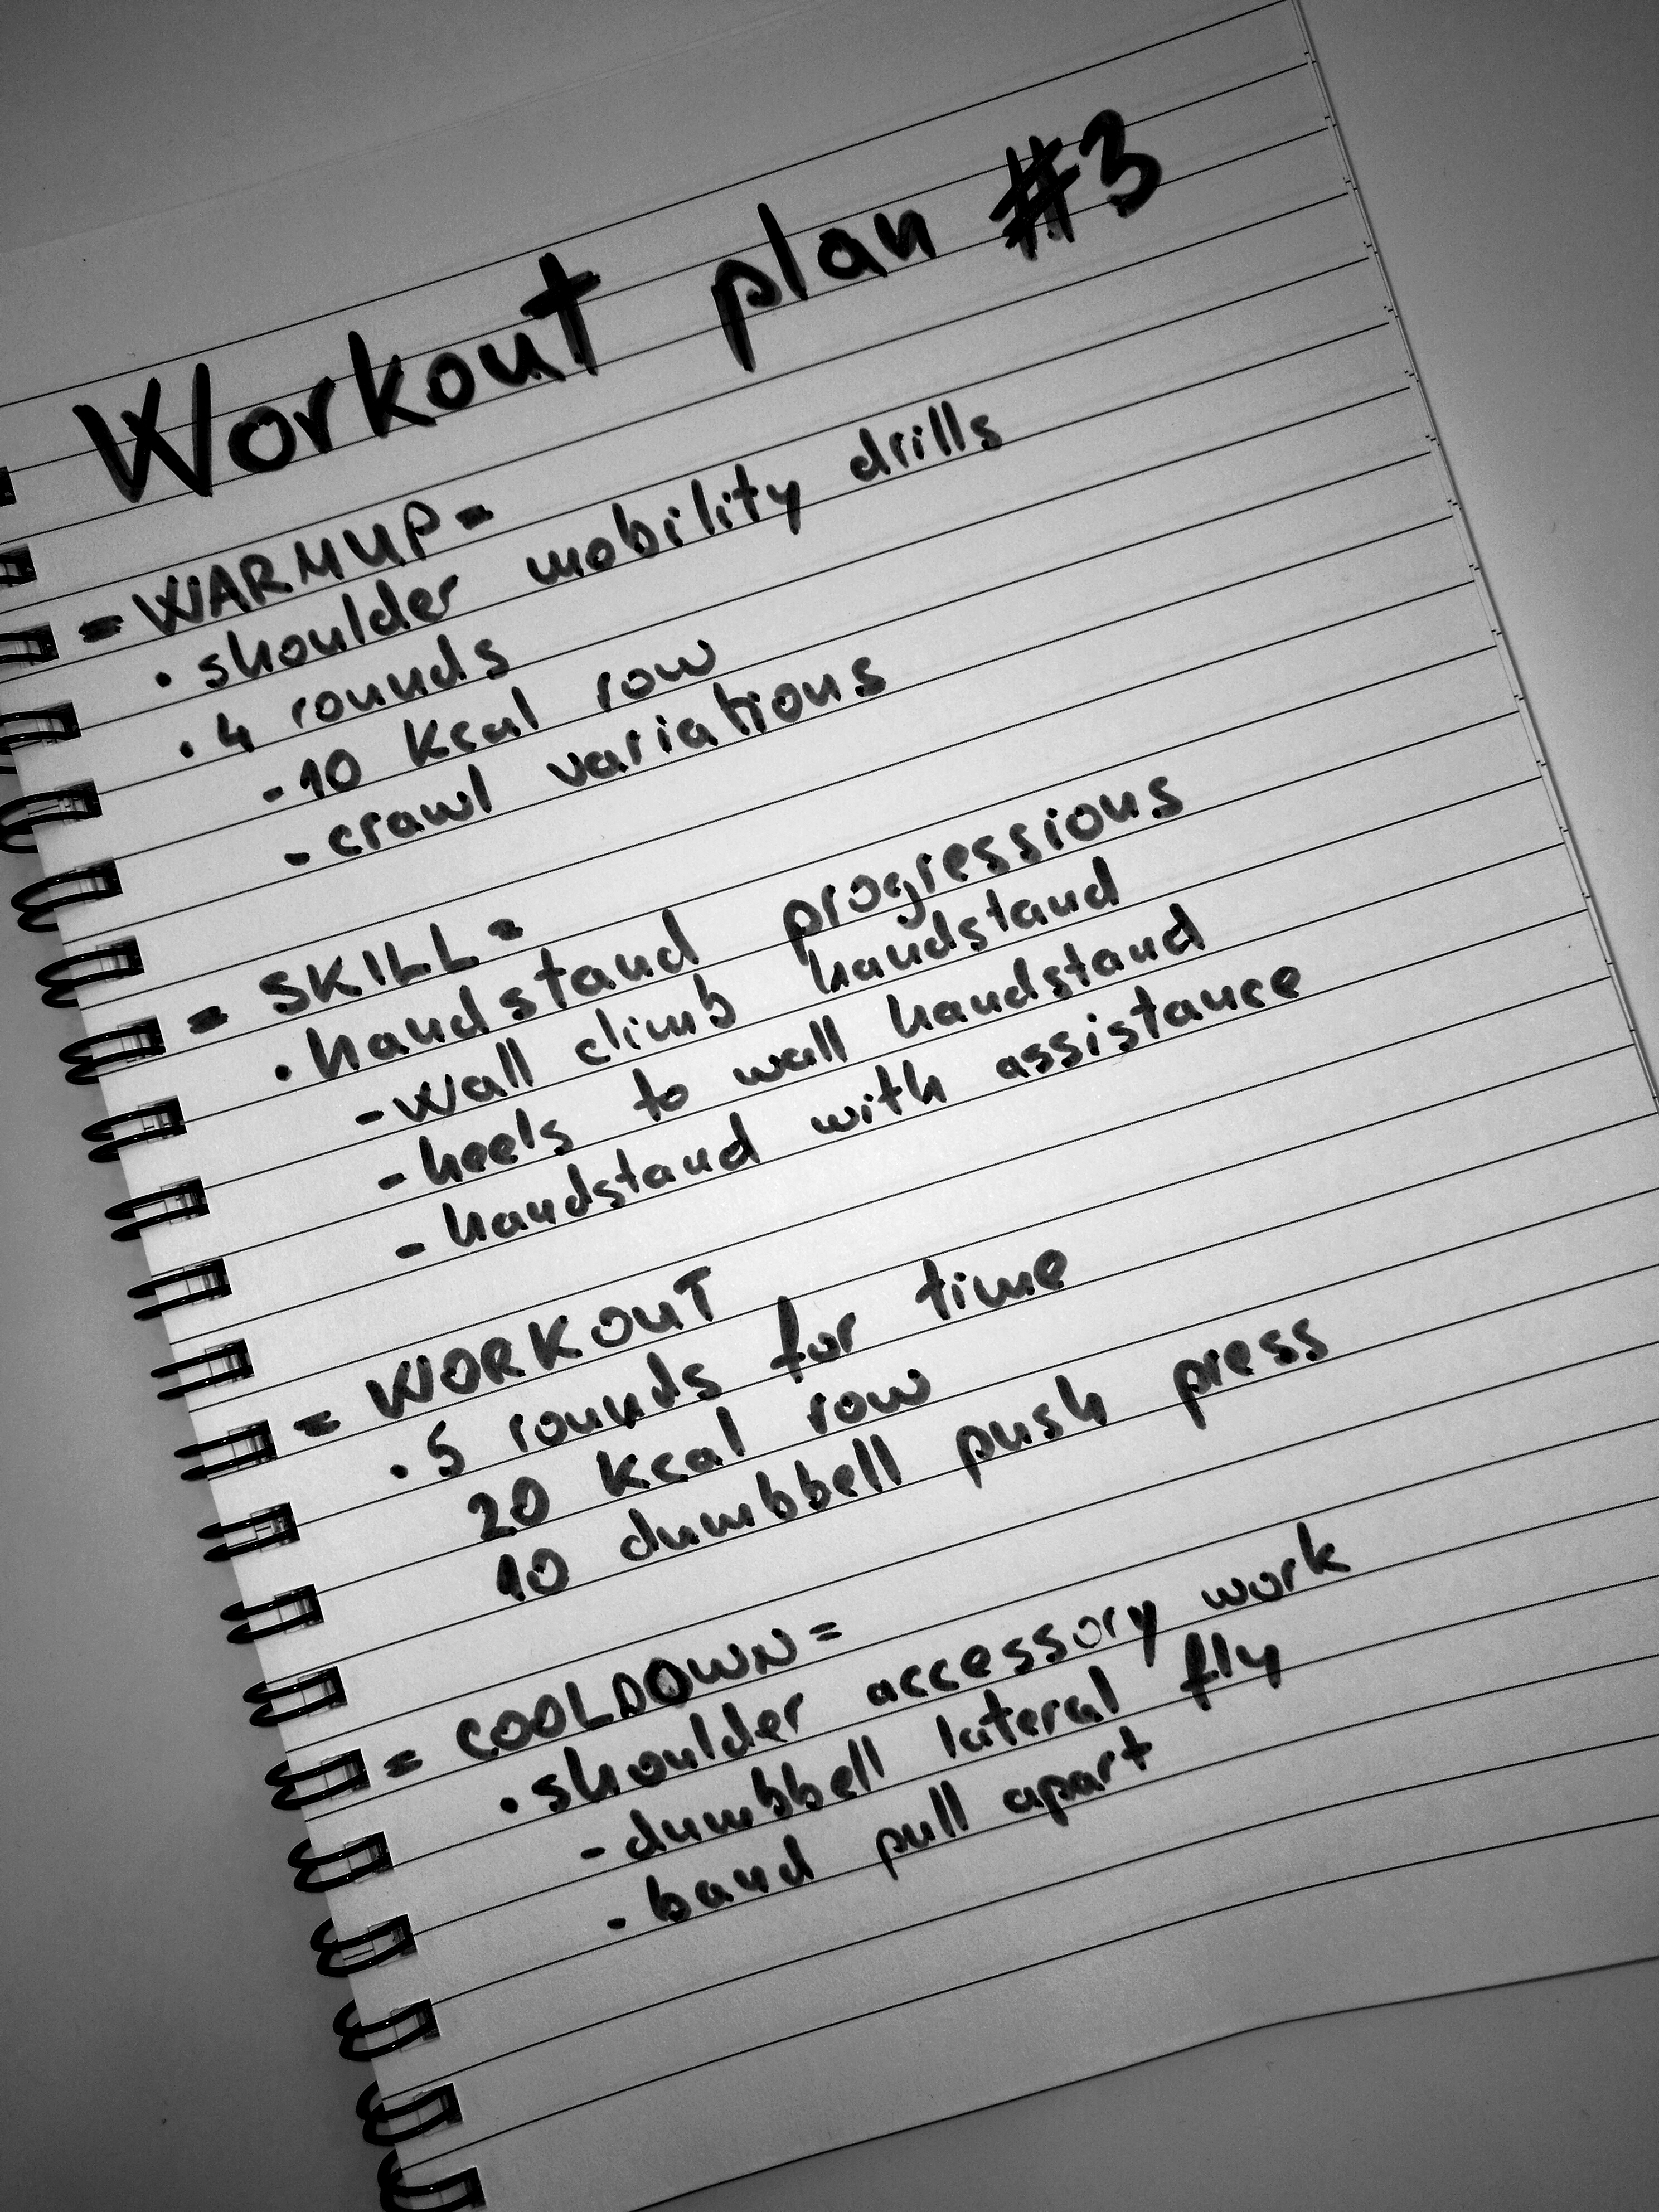 Workout plan #3
= WARMUP =
• shoulder mobility drills
• 4 rounds
- 10 kcal row
- crawl variations
= SKILL =
• handstand progressions
- wall climb handstand
- heels to wall handstand
- handstand with assistance
= WORKOUT
• 5 rounds for time
20 kcal row
10 dumbbell push press
= COOLDOWN =
• shoulder accessory work
- dumbbell lateral fly
- band pull apart